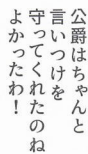 公爵はちゃんと
言いつけを
守ってくれたのね
よかったわ！